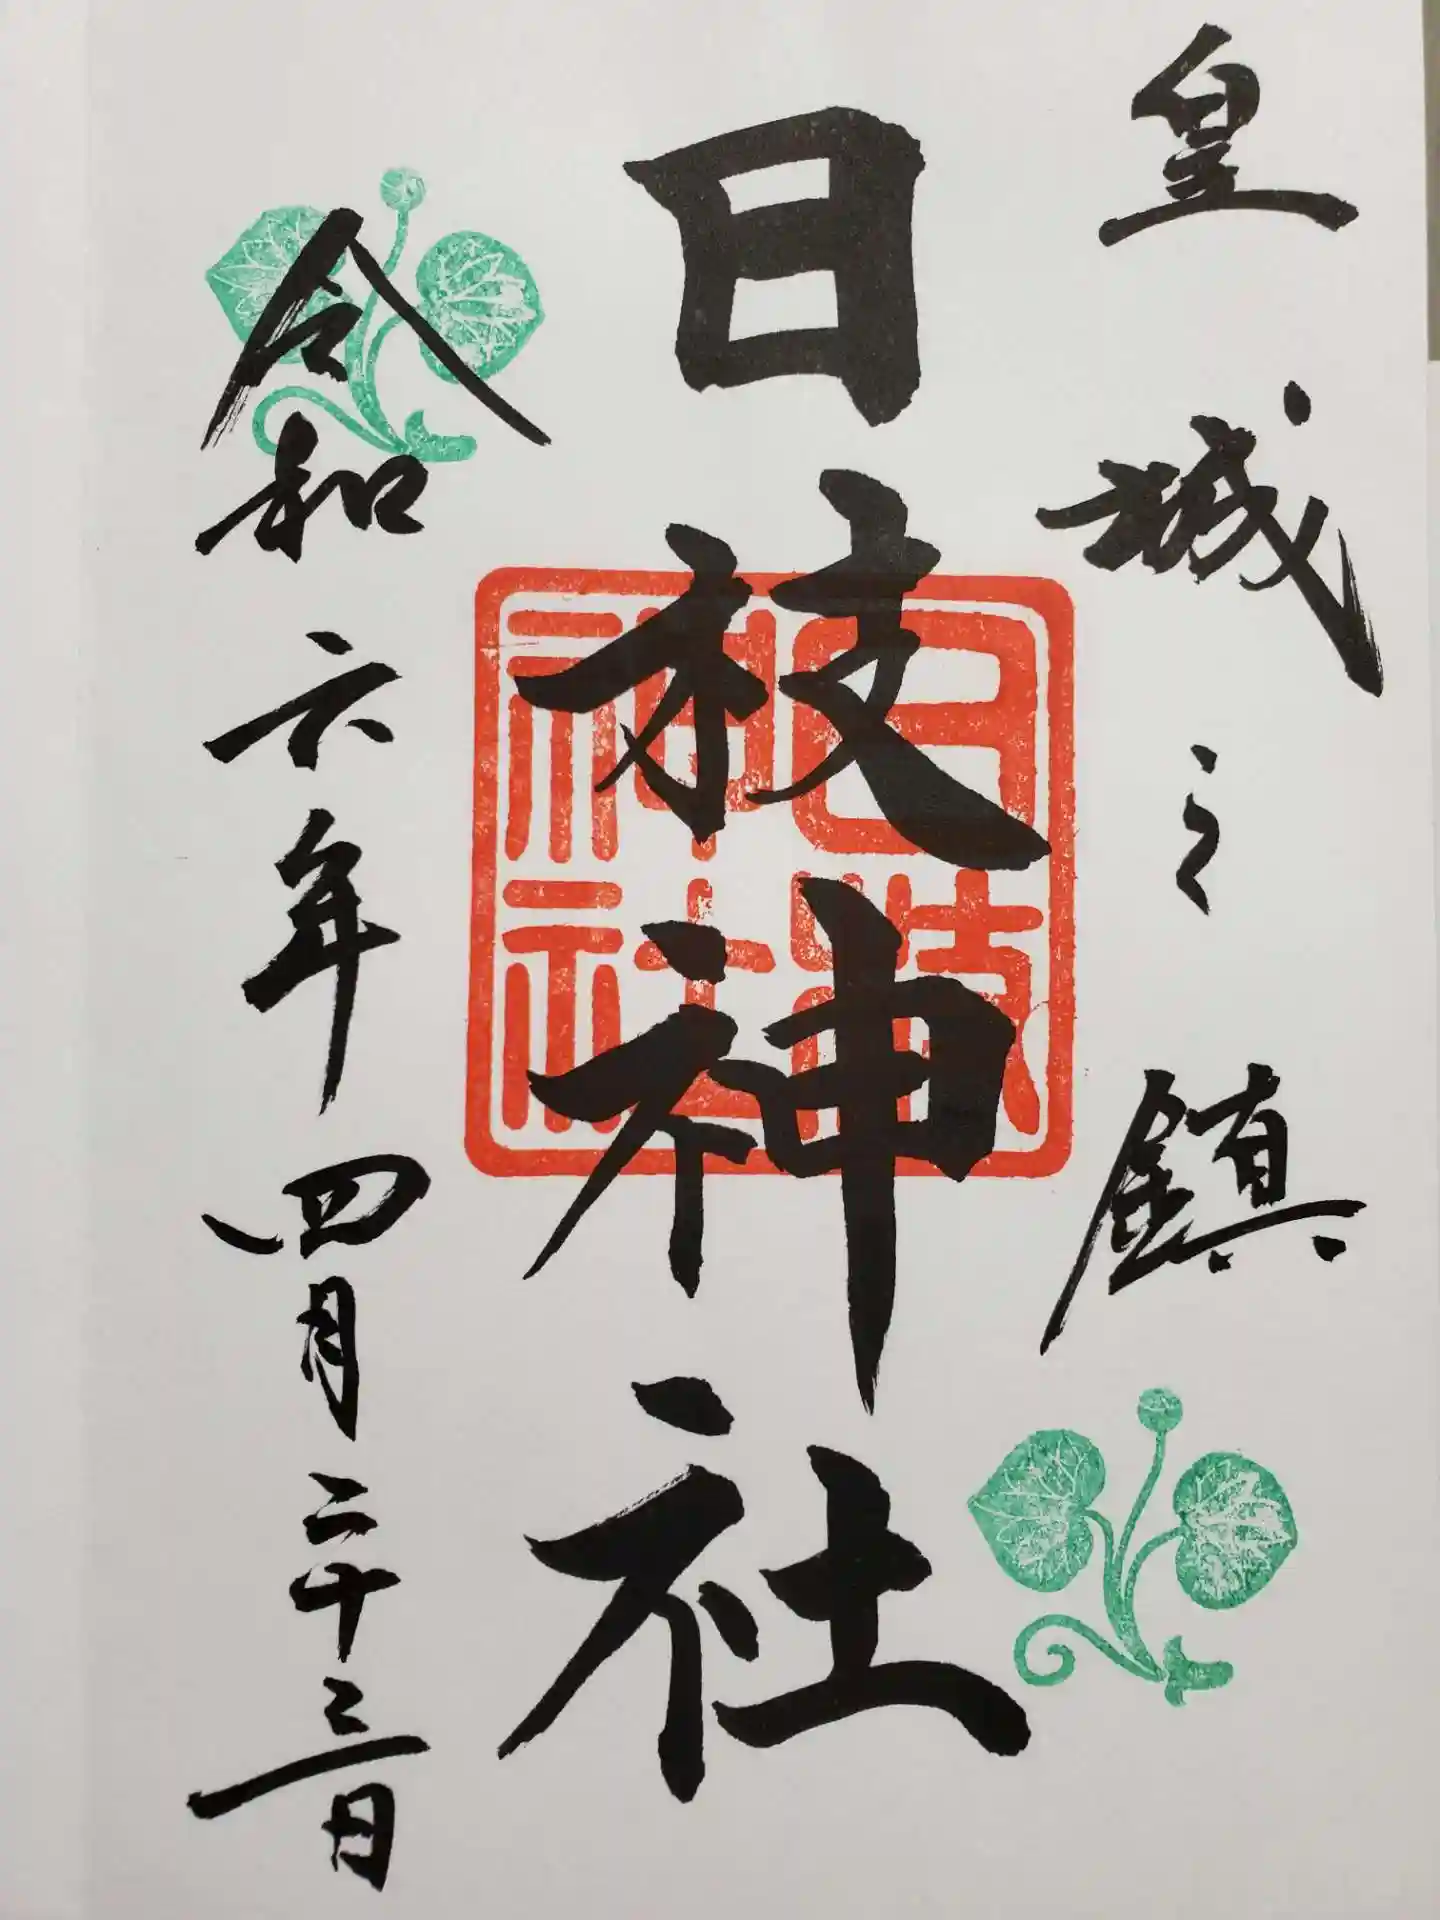 皇城之鎮
日枝神社
日枝神社
令和六年四月二十三日